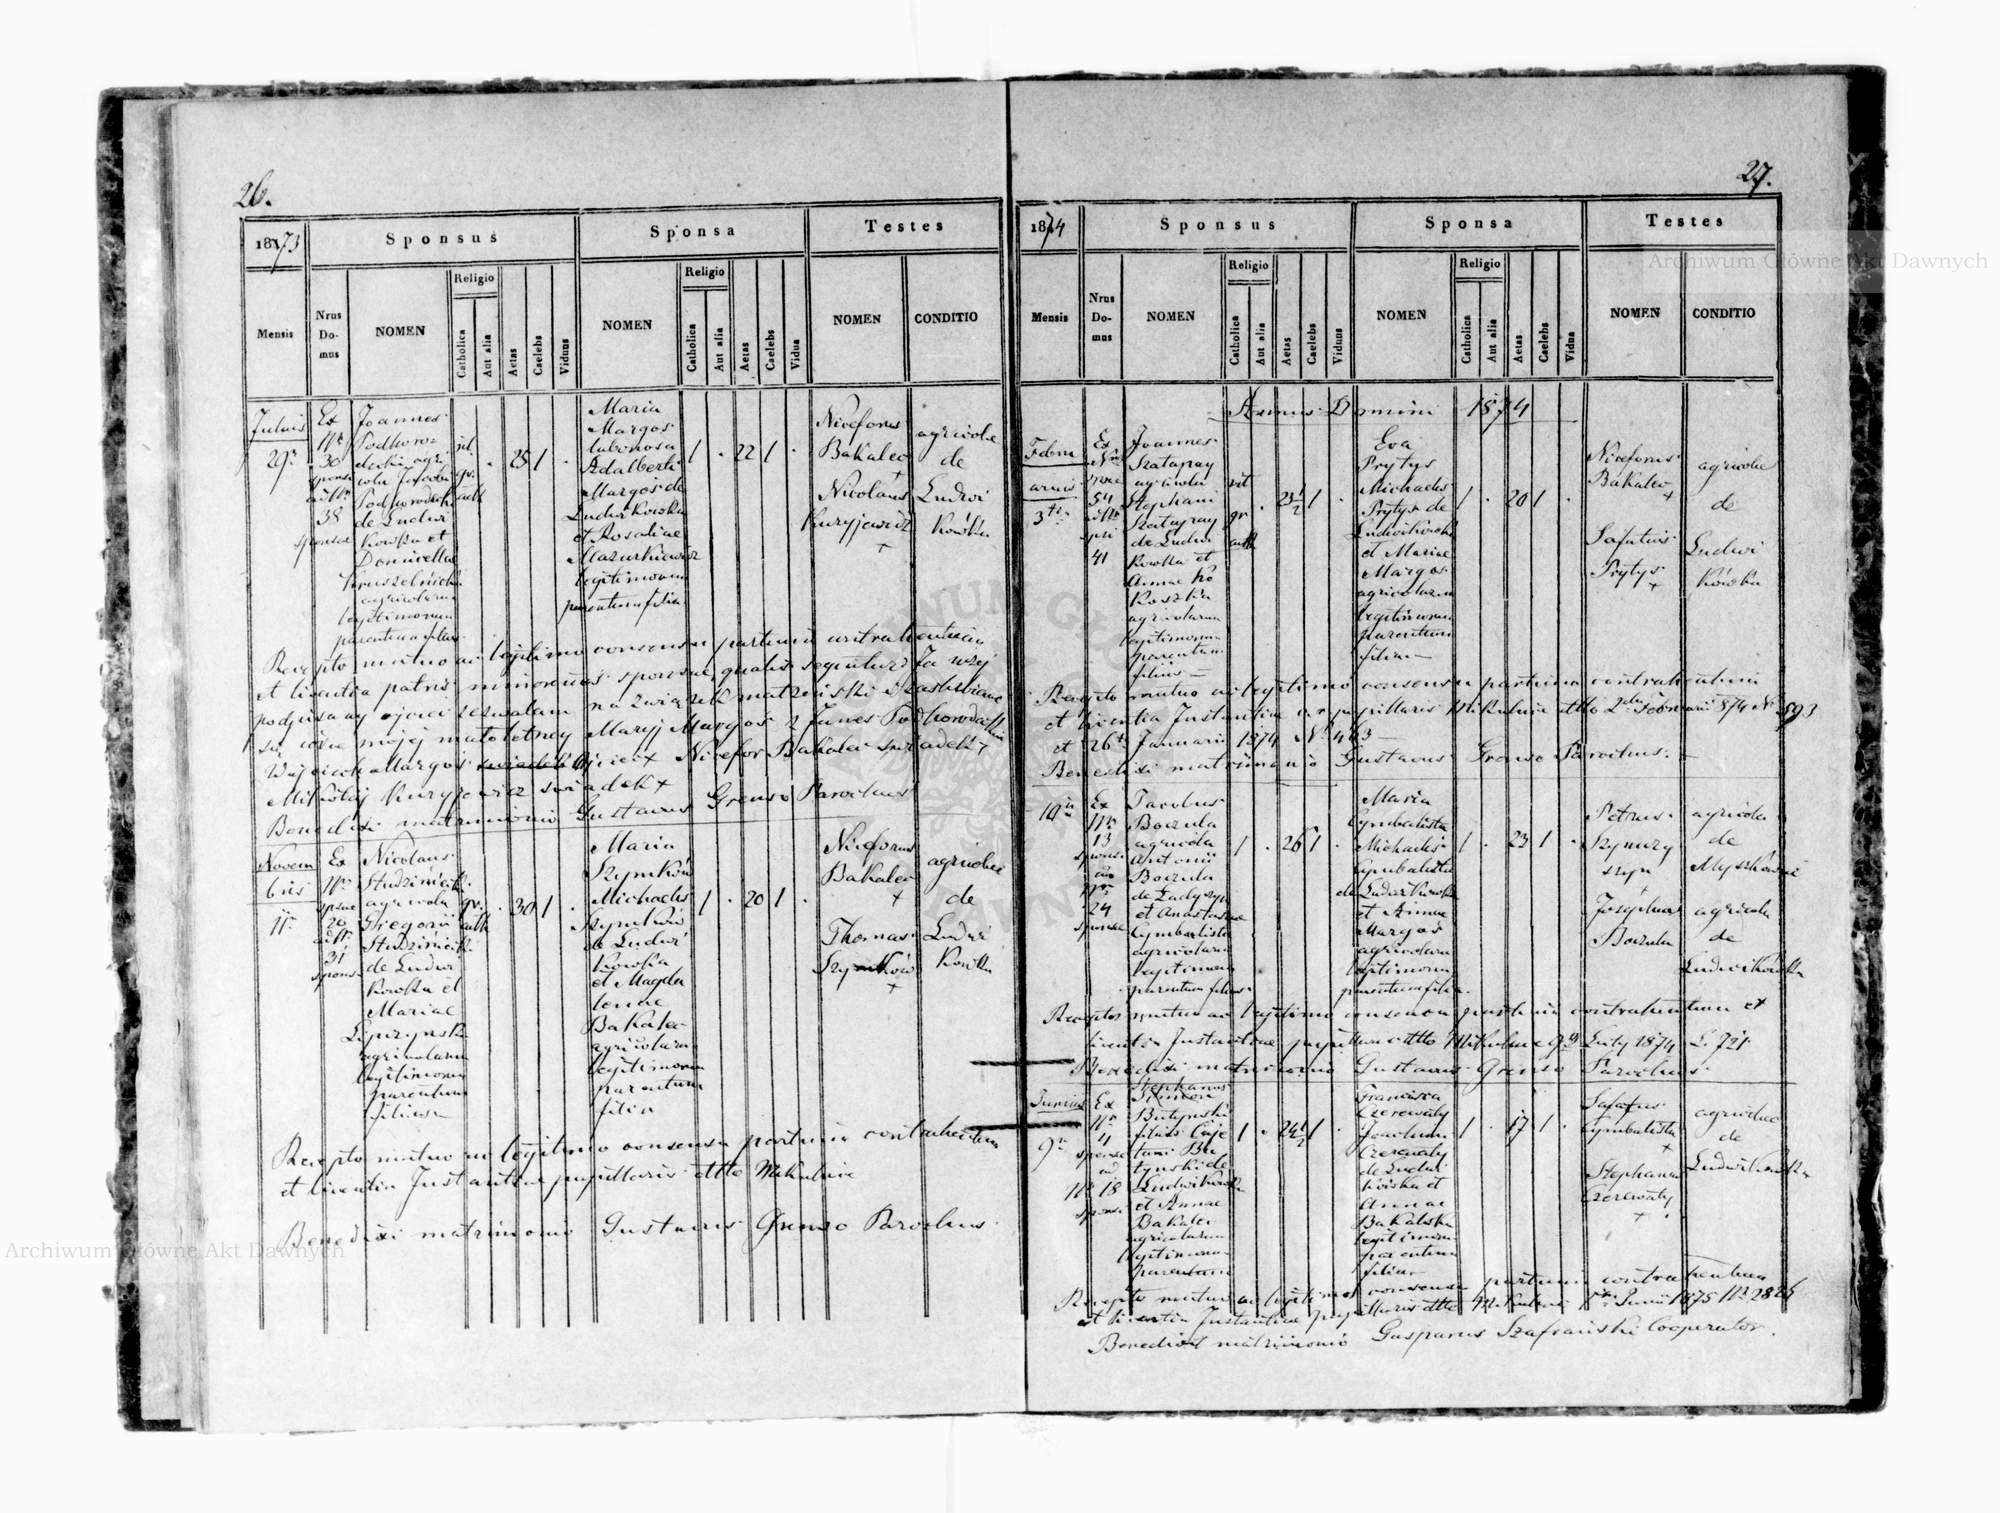 26.
1873
Sponsus
Sponsa
Testes
Mensis
Nrus Domus
NOMEN
Religio
Catholica
Aut alia
Aetas
Caelebs
Viduus
NOMEN
Religio
Catholica
Aut alia
Aetas
Caelebs
Vidua
NOMEN
CONDITIO
Julius
29
Ex
Nr
30
sponsi
38
sponsae
Joannes
agri
cola
de Ludwi
kowka et
agricolarum
legitimorum
parentum filius
rit.
gr.
cath
25
1
Maria
Margos
Adalberti
Margos de
Ludwikowka
et Rosaliae
Mazurkiewicz
legitimorum
parentum filia
1
22
1
Niceforus
Bakalec
+
Nicolaus
Kuryjewicz
+
agricolae
de
Ludwi
kówka
Recepto mutuo ac legitimo consensu partium contrahentium
et licentia patris minorennis sponsae, qualis sequitur: Ja niżej
podpisany ojciec zezwalam na związek matżeński i zaslubianie
się córce mojej małoletniej Maryi Margos z Janem Podhorodeckim
Wojciech Margos ojciec + Nicefor Bakalec swiadek +
Mikołaj Kuryjewicz swiadek +
Benedixi matrimonio Gustavus Grenso Parochus
Novem
bris
11
Ex
Nr
sponsae
20
31
sponsi
Nicolaus
agricola
Gregorii
de Ludwi
kowka et
Mariae
agricolarum
legitimorum
parentum
filius
gr.
cath
30
1
Maria
Szymków
Michaelis
Szymków
de Ludwi
kowka
et Magda
lenae
Bakalec
agricolarum
legitimorum
parentum
filia
1
20
1
Niceforus
Bakalec
+
Thomas
Szymków
+
agricolae
de
Ludwi
kowka
Recepto mutuo ac legitimo consensu partium contrahentium
et licentia Instantiae pupillaris dtto Mikulince
Benedixi matrimonio Gustavus Grenso Parochus
27.
1874
Sponsus
Sponsa
Testes
Mensis
Nrus Domus
NOMEN
Religio
Catholica
Aut alia
Aetas
Caelebs
Viduus
NOMEN
Religio
Catholica
Aut alia
Aetas
Caelebs
Vidua
NOMEN
CONDITIO
Annus Domini 1874
Febru
arius
3
Ex
Nr
54
41
Joannes
Szatapay
agricola
Stephani
Szatapay
de Ludwi
kowka et
Annae Ko
koszka
agricolarum
legitimorum
parentum
filius
rit
gr
cath
23½
1
Eva
Prytys
Michaelis
Prytys de
Ludwikowka
et Mariae
Margos
agricolarum
legitimorum
parentum
filia
1
20
1
Niceforus
Bakalec
+
Prytys
+
agricolae
de
Ludwi
kówka
Recepto mutuo ac legitimo consensu partium contrahentium
et licentia Instantiae pupillaris Mikulince dtto 2 Februarii 874 Nr 593
et 26 Januarii 1874 Nr 463
Benedixi matrimonio Gustavus Grenso Parochus.
10
Ex
Nr
13
sponsi
Nro
24
sponsae
Jacobus
Boczula
agricola
Antonii
Boczula
et Anastasiae
Cymbalista
agricolarum
legitimorum
parentum filius
1
26
1
Maria
Cymbalista
Michaelis
Cymbalista
de Ludwikowka
et Annae
Margos
agricolarum
legitimorum
parentum filia
1
23
1
Petrus
Szymczy
szyn
+
Josephus
Boczula
agricola
de
agricola
de
Ludwikowka
Recepto mutuo ac legitimo consensu partium contrahentium et
licentia Instantiae pupillaris dtto Mikulince 9 Luty 1874 L. 721
Benedixi matrimonio Gustavus Grenso Parochus
Junius
9
Ex
Nr
4
sponsae
ad
Nr 18
sponsi
Stephanus
Butynski
filius Caje
tani Bu
tynski de
Ludwikowka
et Annae
Bakalec
agricolarum
legitimorum
parentum
1
24½
1
Francisca
Czerewaty
Joachim
Czerewaty
de Ludwi
kówka et
Annae
Bakalska
legitimorum
parentum
filia
1
17
1
Cymbalista
+
Stephanus
Czerewaty
+
agricolae
de
Ludwikowka
Recepto mutuo ac legitimo consensu partium contrahentium
et licentia Instantiae pupillaris dtto Mikulince Junii 1875 Nr 2826
Benedixit matrimonio Gasparus Szafrański Cooperator.
Archiwum Główne Akt Dawnych
Archiwum Główne Akt Dawnych